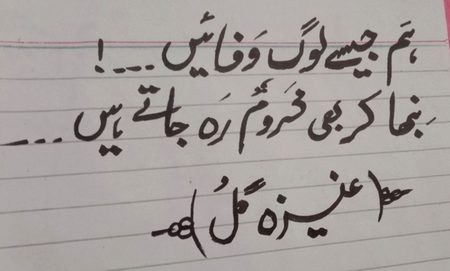 ہَم جیسے لوگ وَفائیں ---!
نِبھا کر بھی محرومْ رَہ جاتے ہیں ---
(عنیزہ گُلْ)